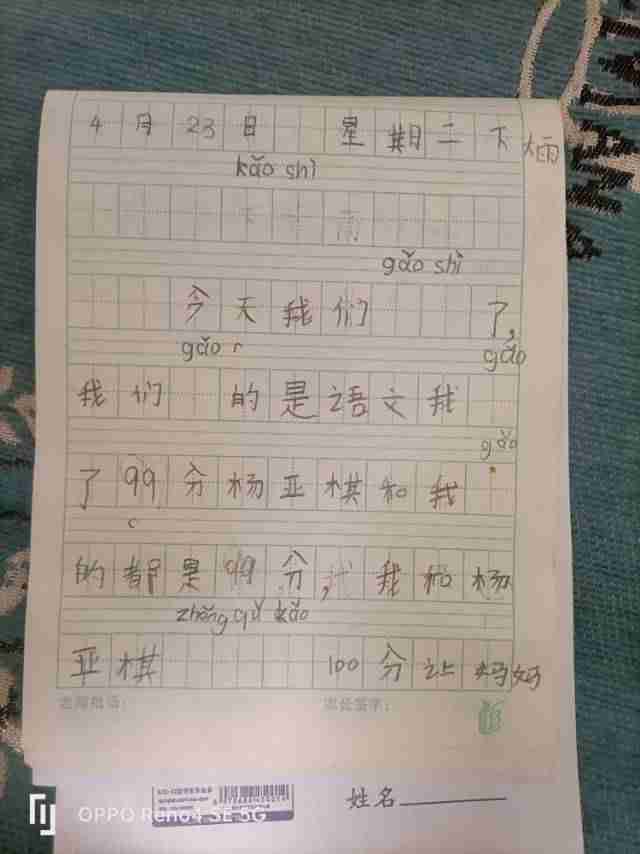 4月23日 星期二下大雨
kǎo shì
gǎo shì
今天我们 了,
gǎo r gǎo
我们 的是语文我
gǎo
了99分杨亚棋和我
c
的都是99分,我和杨
zhěng qǔ kǎo
亚棋 100分让妈妈
老师批语: 家长签字:
13
姓名
OPPO Reno4 SE 5G